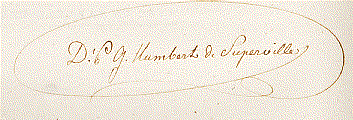 D. P. G. Humbert de Superville